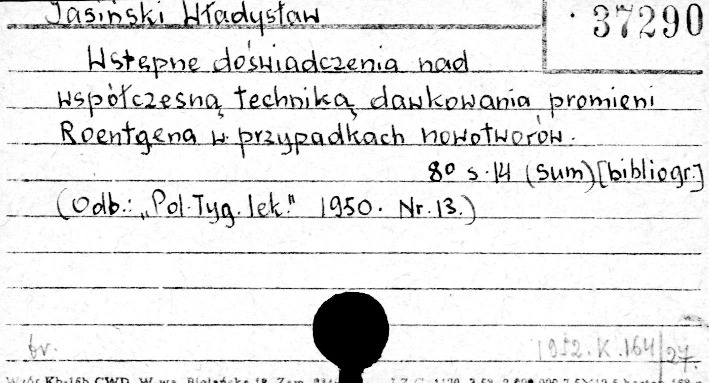 Jasiński Władysław
37290
Wstępne doświadczenia nad
współczesną techniką dawkowania promieni
Roentgena w przypadkach nowotworów.
8° s. 14 (sum) [bibliogr.]
(Odb.: „Pol. Tyg. lek." 1950. Nr. 13.)
br.
1952.K.164/27.
CWD. W-wa, Bielańska 18. Zam.